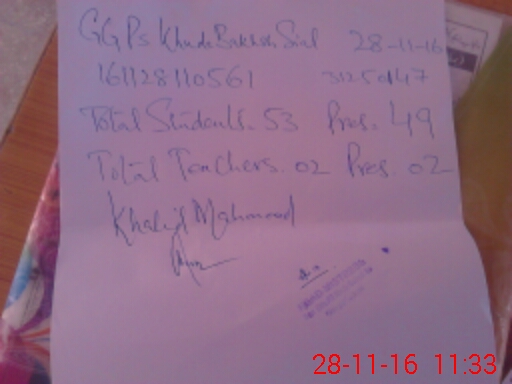 GGPS Khuda Bakhsh Sial 28-11-16
161128110561 31250147
Total Students. 53 Pres. 49
Total Teachers. 02 Pres. 02
Khalid Mahmood
28-11-16 11:33